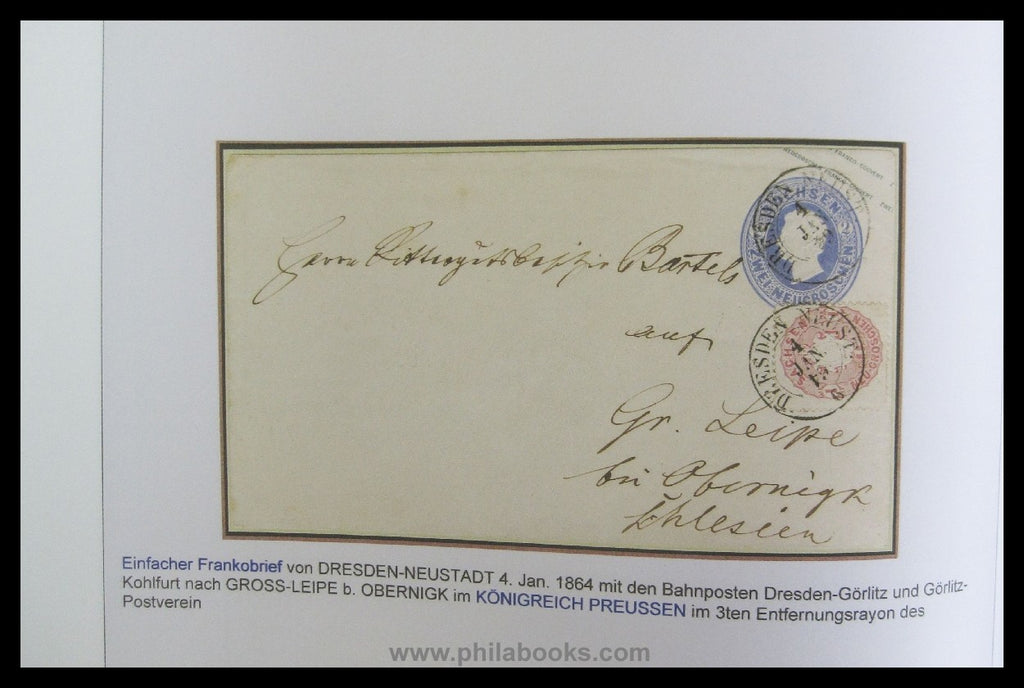 FRANCO-COUVERT
SACHSEN
ZWEI NEUGROSCHEN
DRESDEN NEUST
4
JAN
Herrn Rittergutsbesitzer Bartels
auf
DRESDEN NEUST
4
JAN
SACHSEN
Gr. Leipe
bei Obernigk
Schlesien
Einfacher Frankobrief von DRESDEN-NEUSTADT 4. Jan. 1864 mit den Bahnposten Dresden-Görlitz und Görlitz-
Kohlfurt nach GROSS-LEIPE b. OBERNIGK im KÖNIGREICH PREUSSEN im 3ten Entfernungsrayon des
Postverein
www.philabooks.com